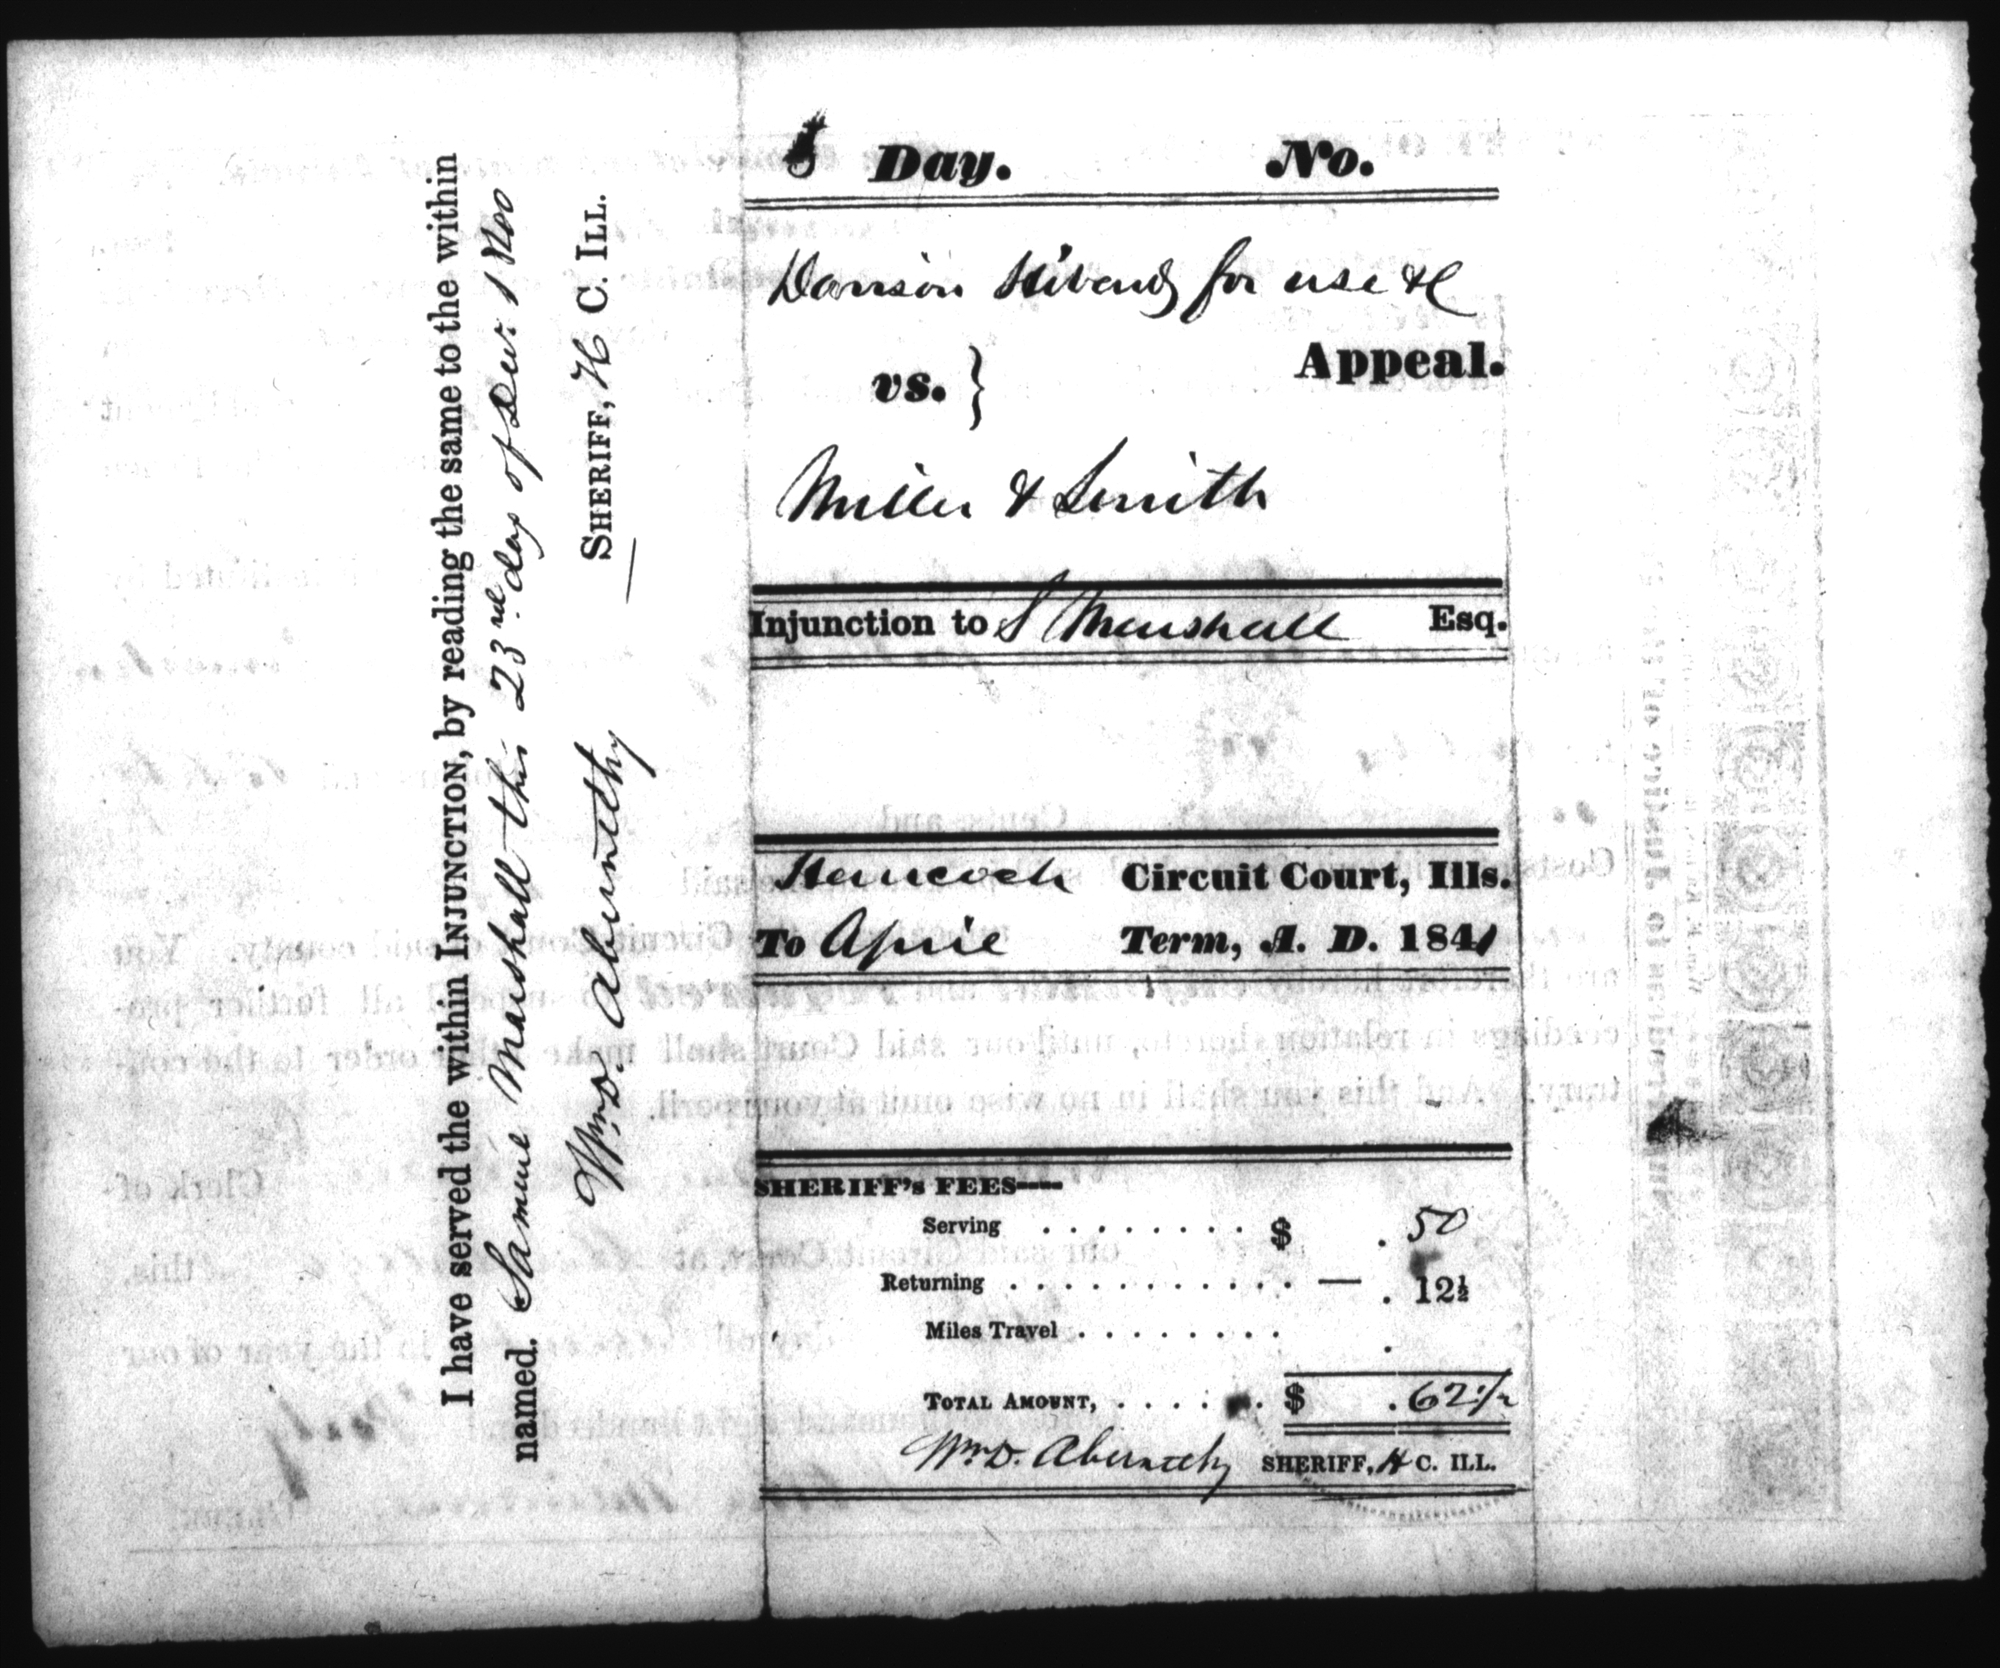 I have served the within INJUNCTION, by reading the same to the within
named. Samuel Marshall this 23rd day of Dec. 1840
Wm. D. Abernethy SHERIFF, H C. ILL.
Day. No.
for use &c
vs. } Appeal.
Miller & Smith
Injunction to S Marshall Esq.
Hancock Circuit Court, Ills.
To April Term, A. D. 1841
SHERIFF's FEES----
Serving . . . . . . . . $ . 50
Returning . . . . . . . . . . . . — . 12½
Miles Travel . . . . . . . . .
TOTAL AMOUNT, . . . . . . $ . 62 1/2
Wm. D. Abernethy SHERIFF, H C. ILL.